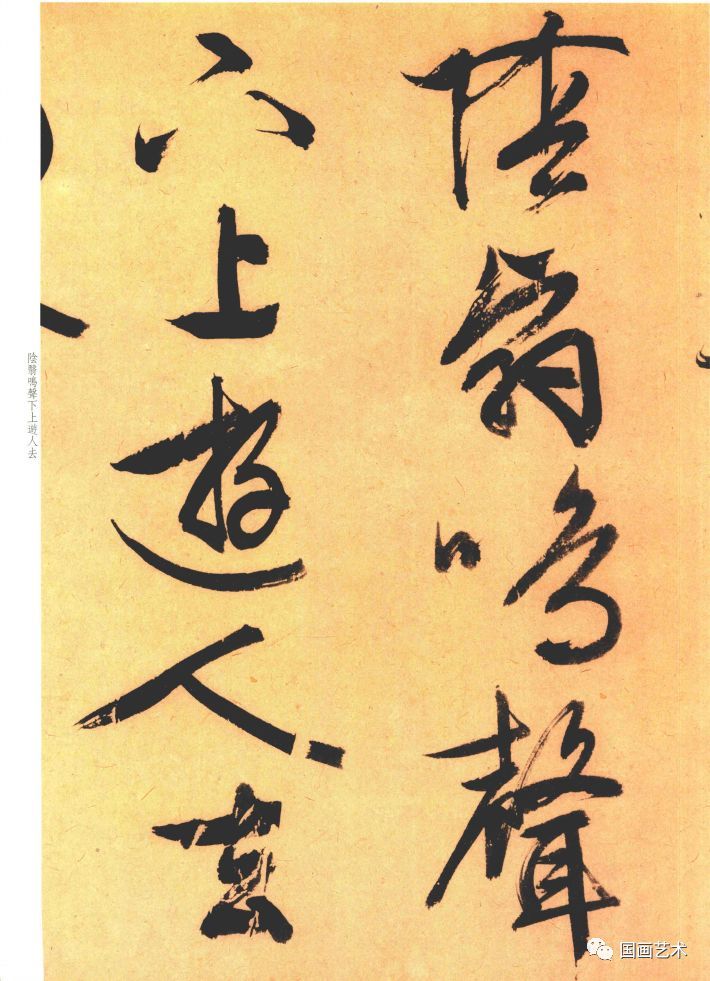 陰翳鳴聲
下上遊人去
陰翳鳴聲下上遊人去
国画艺术